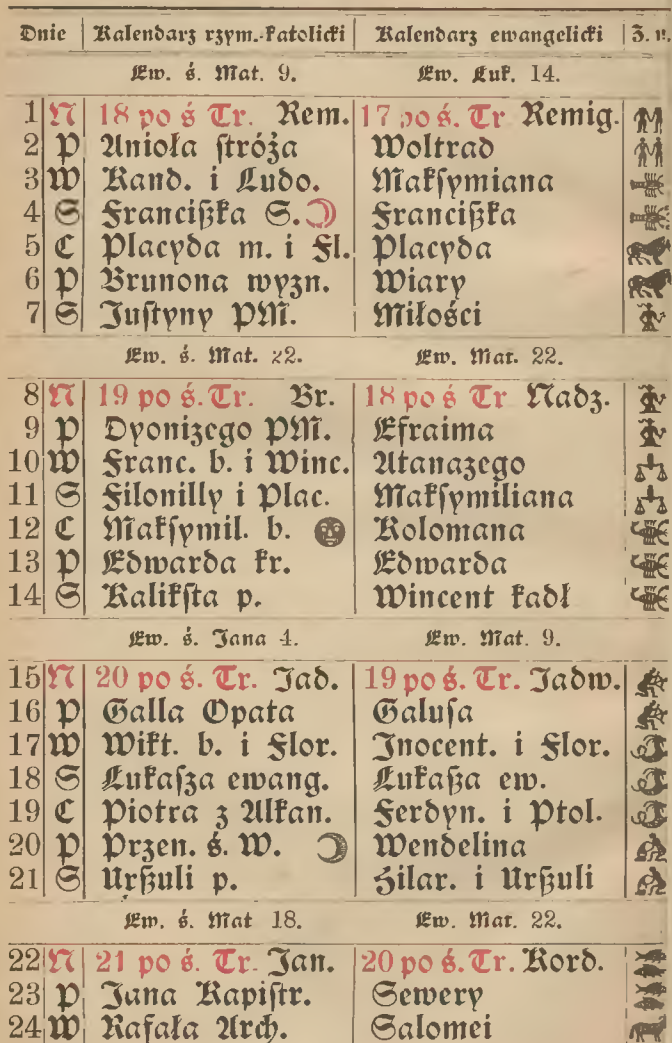 Dnie Kalendarz rzym.-katolicki Kalendarz ewangelicki Z. n.
Ew. ś. Mat. 9. Ew. Łuk. 14.
1 N 18 po ś Tr. Rem. 17 po ś. Tr Remig.
2 P Anioła ſtróża Woltrad
3 W Kand. i Ludo. Makſymiana
4 S Franciſzka S. Franciſzka
5 C Placyda m. i Fl. Placyda
6 P Brunona wyzn. Wiary
7 S Juſtyny PM. Miłości
Ew. ś. Mat. 22. Ew. Mat. 22.
8 N 19 po ś. Tr. Br. 18 po ś Tr Nadz.
9 P Dyonizego PM. Efraima
10 W Franc. b. i Winc. Atanazego
11 S Filonilly i Plac. Makſymiliana
12 C Makſymil. b. Kolomana
13 P Edwarda kr. Edwarda
14 S Kalikſta p. Wincent kadł
Ew. ś. Jana 4. Ew. Mat. 9.
15 N 20 po ś. Tr. Jad. 19 po ś. Tr. Jadw.
16 P Galla Opata Galuſa
17 W Wikt. b. i Flor. Inocent. i Flor.
18 S Łukaſza ewang. Łukaſza ew.
19 C Piotra z Alkan. Ferdyn. i Ptol.
20 P Przen. ś. W. Wendelina
21 S Urſzuli p. Hilar. i Urſzuli
Ew. ś. Mat 18. Ew. Mat. 22.
22 N 21 po ś. Tr. Jan. 20 po ś. Tr. Kord.
23 P Jana Kapiſtr. Sewery
24 W Rafała Arch. Salomei